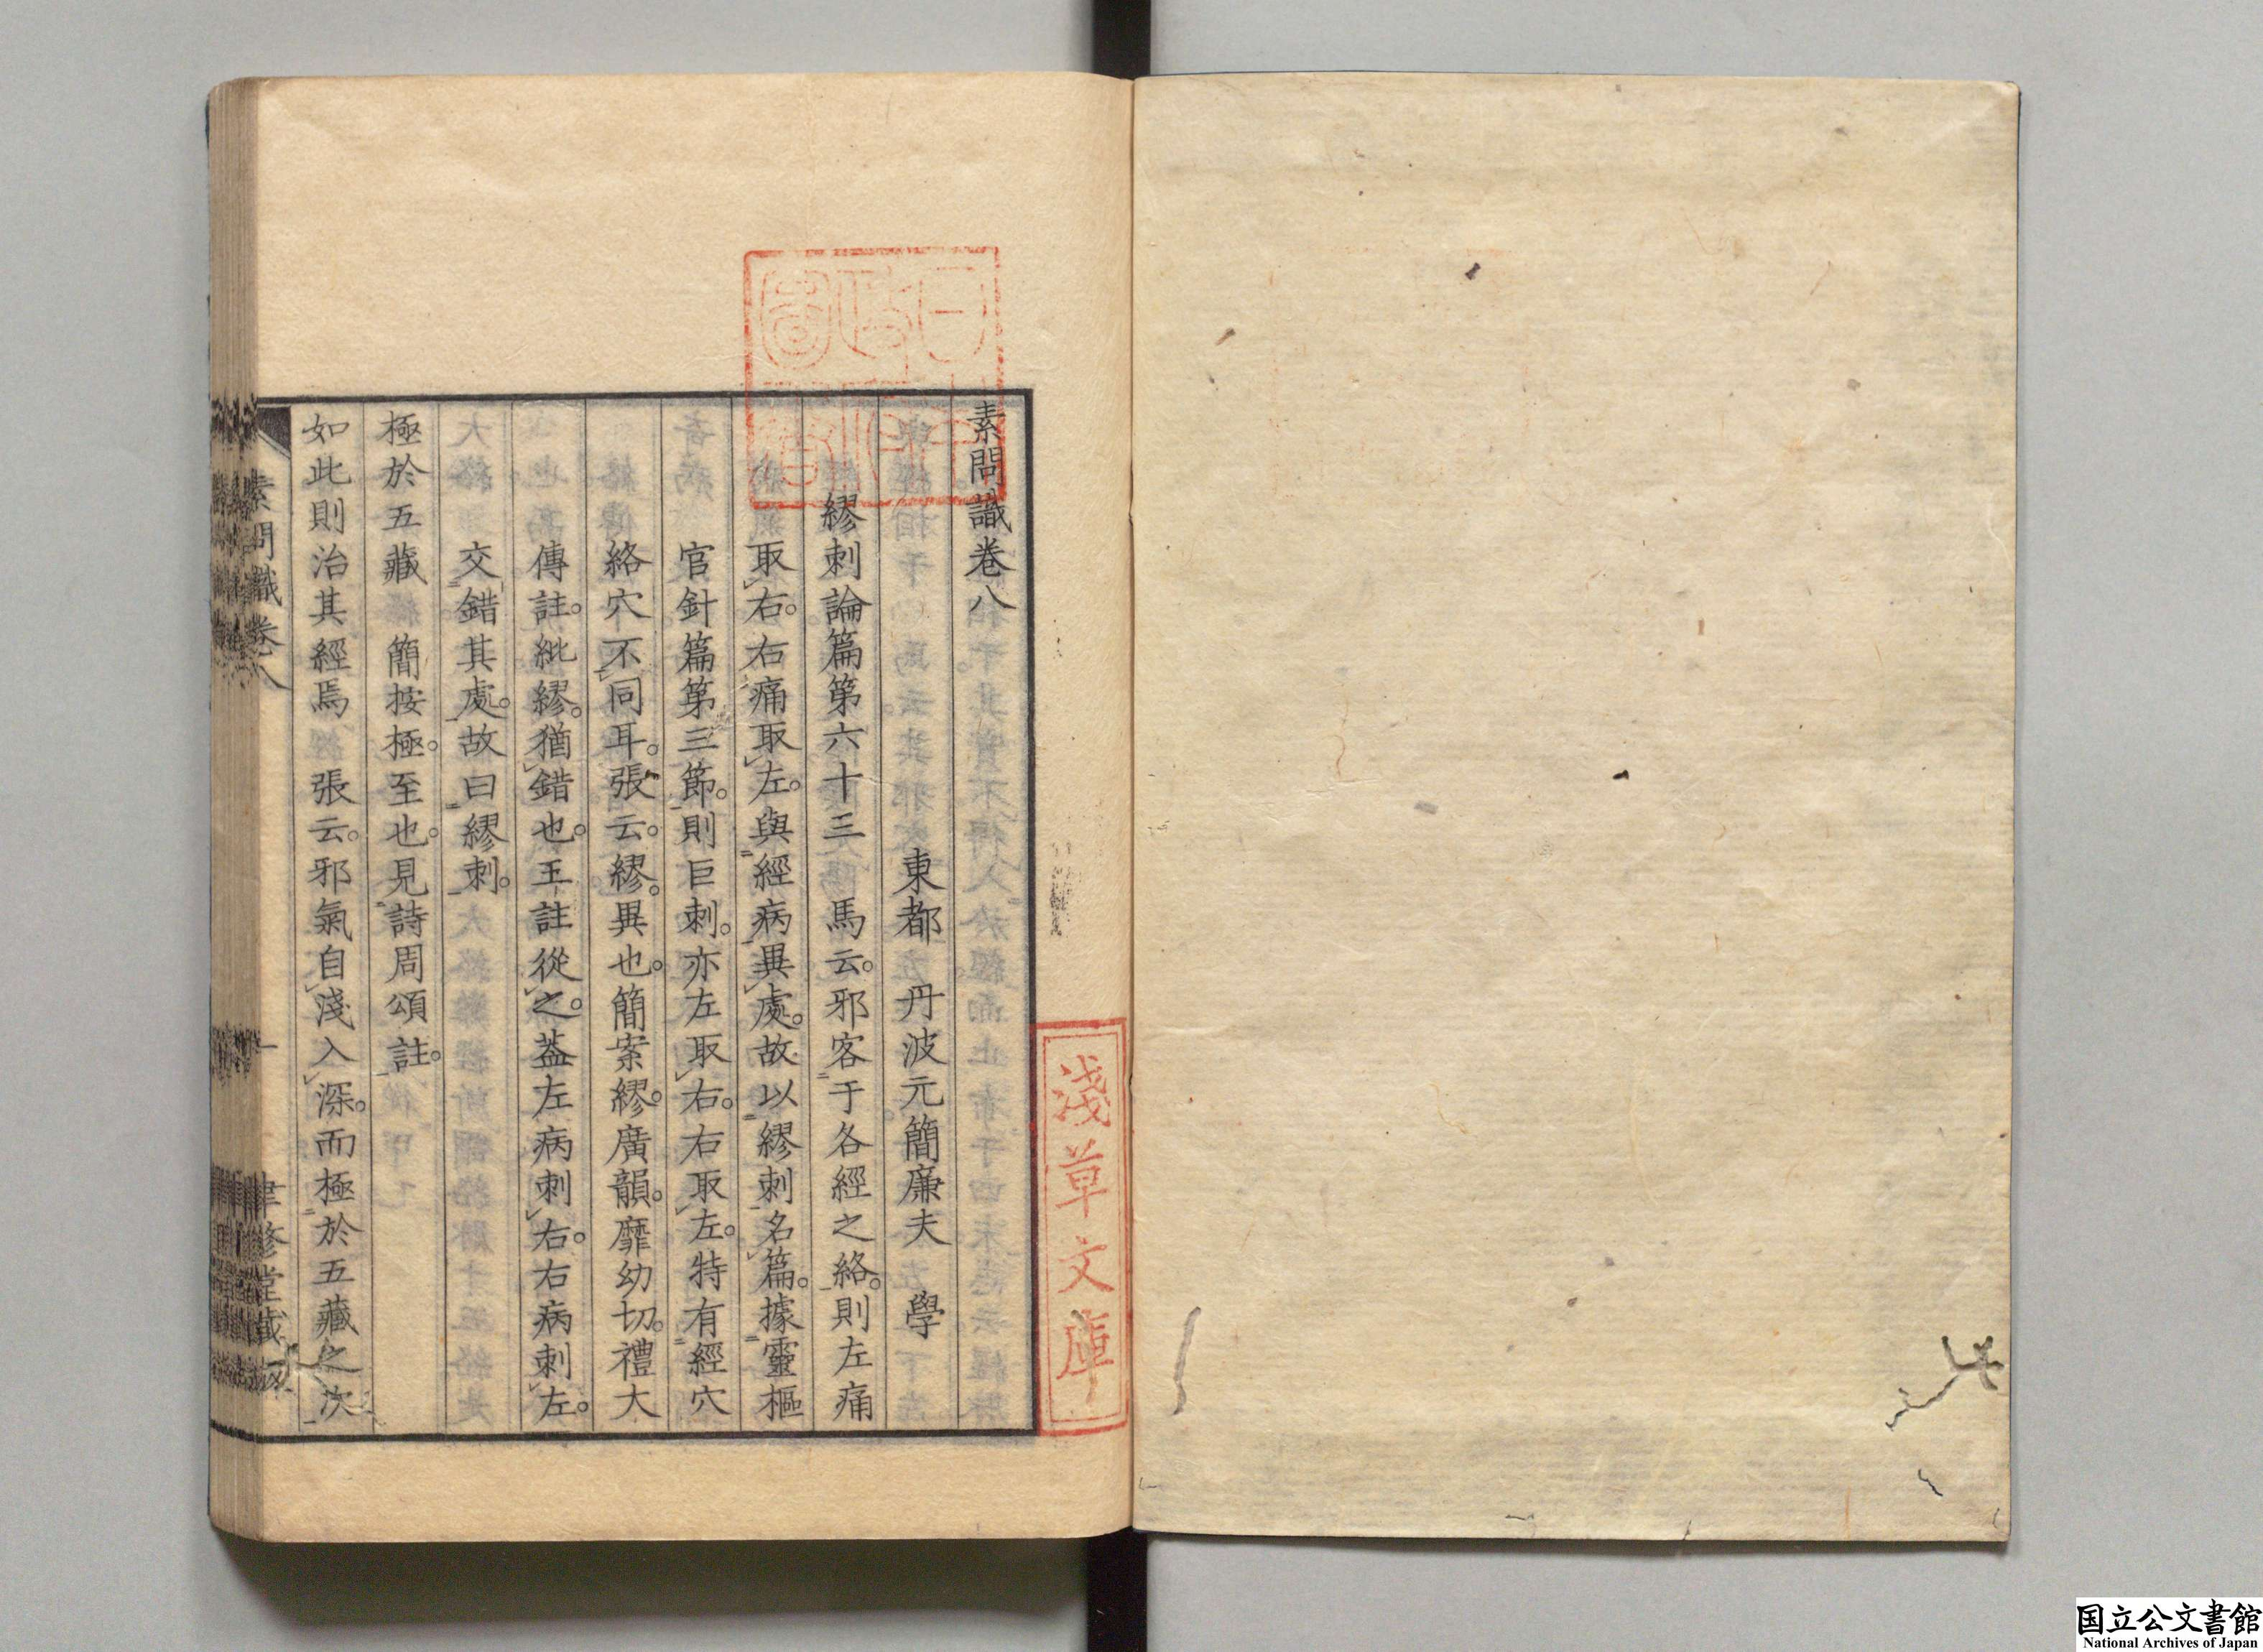 素問識卷八
東都 丹波元簡廉夫 學
繆刺論篇第六十三 馬云。邪客于各經之絡。則左痛
取右。右痛取左。與經病異處。故以繆刺名篇。據靈樞
官針篇第三節。則巨刺。亦左取右。右取左。特有經穴
絡穴不同耳。張云。繆。異也。簡案繆。廣韻。靡幼切。禮大
傳註。紕繆。猶錯也。王註從之。葢左病刺右。右病刺左。
交錯其處。故曰繆刺。
極於五藏 簡按極。至也。見詩周頌註。
如此則治其經焉 張云。邪氣自淺入深。而極於五藏之次
素問識卷八
一
聿修堂藏版
淺草文庫
国立公文書館
National Archives of Japan